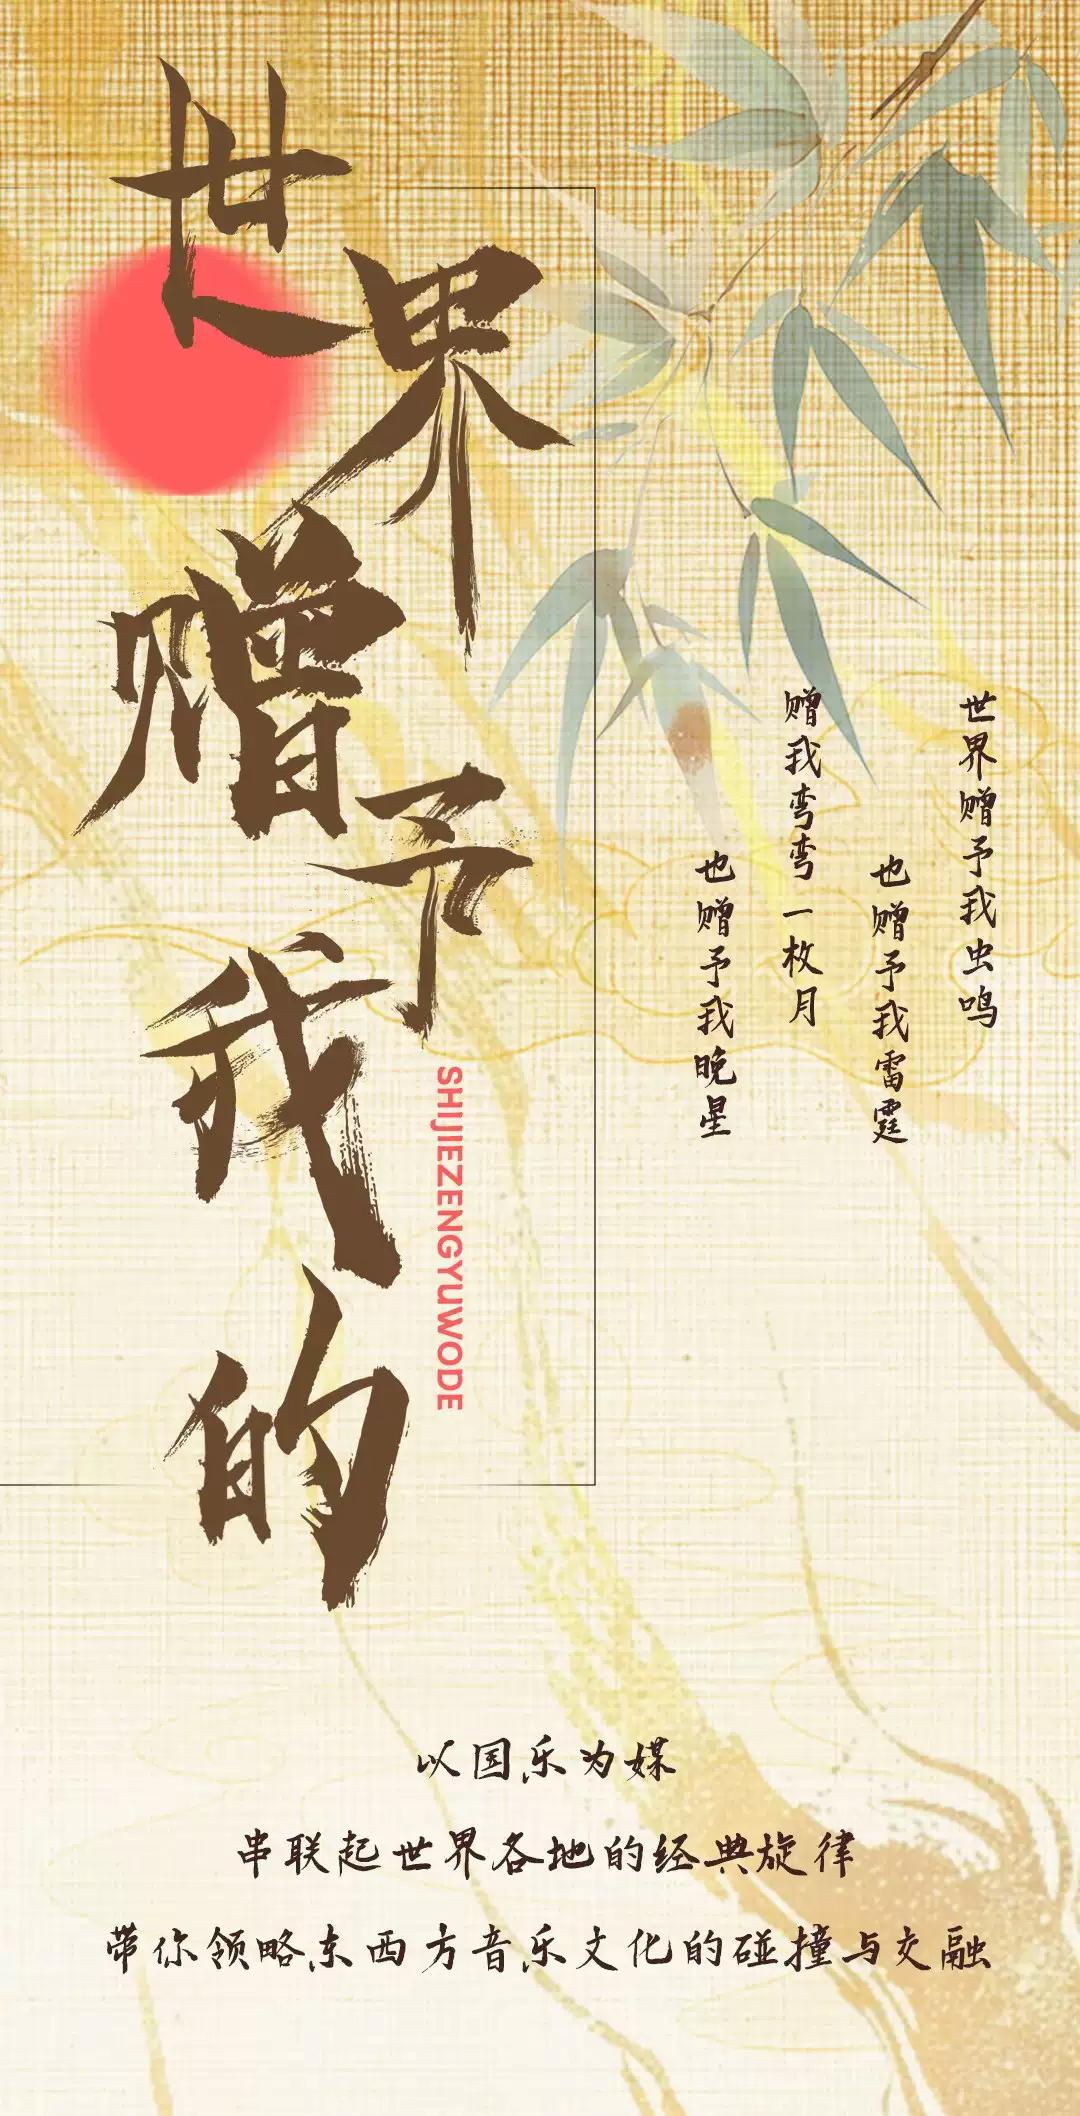 世界赠予我的
SHIJIEZENGYUWODE
世界赠予我虫鸣
也赠予我雷霆
赠我弯弯一枚月
也赠予我晚星
以国乐为媒
串联起世界各地的经典旋律
带你领略东西方音乐文化的碰撞与交融